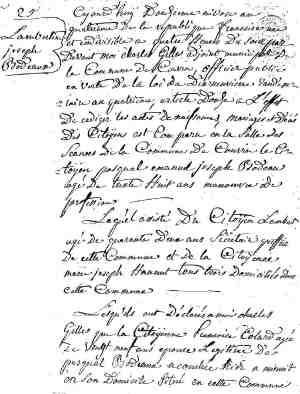 25
Lambertine
joseph
Bodeaux
Cejourd'huy Douzieme nivose an
quatrieme de la republique francaise une
et indivisible a quatre heures du soir par
Devant moi charles Gilles adjoint municipal de
la Commune de Couvin, officier public
en vertu de la loi du Dix neuvieme vendemi
iaire an quatrieme article a L'effet
de rediger les actes de naissances, mariages et Décès
Des Citoyens est Comparu en la Salle des
Seances de la Commune de Couvin le Ci
toyen pasqual emanuel joseph Bodeau
agé de trente huit ans manouvre de
profession
Lequel assisté Du Citoyen Lambert
agé de quarante D'un ans Secretaire greffier
De cette Commune et de la Citoyenne
marie joseph tous trois Domiciliés dans
cette Commune
Lesquels ont Déclaré a moi charles
Gilles que la Citoyenne agé
e de Vingt neuf ans epouse Legitime De
pasqual Bodeaux accouchée hier a minuit
en son Domicile Situé en cette Commune